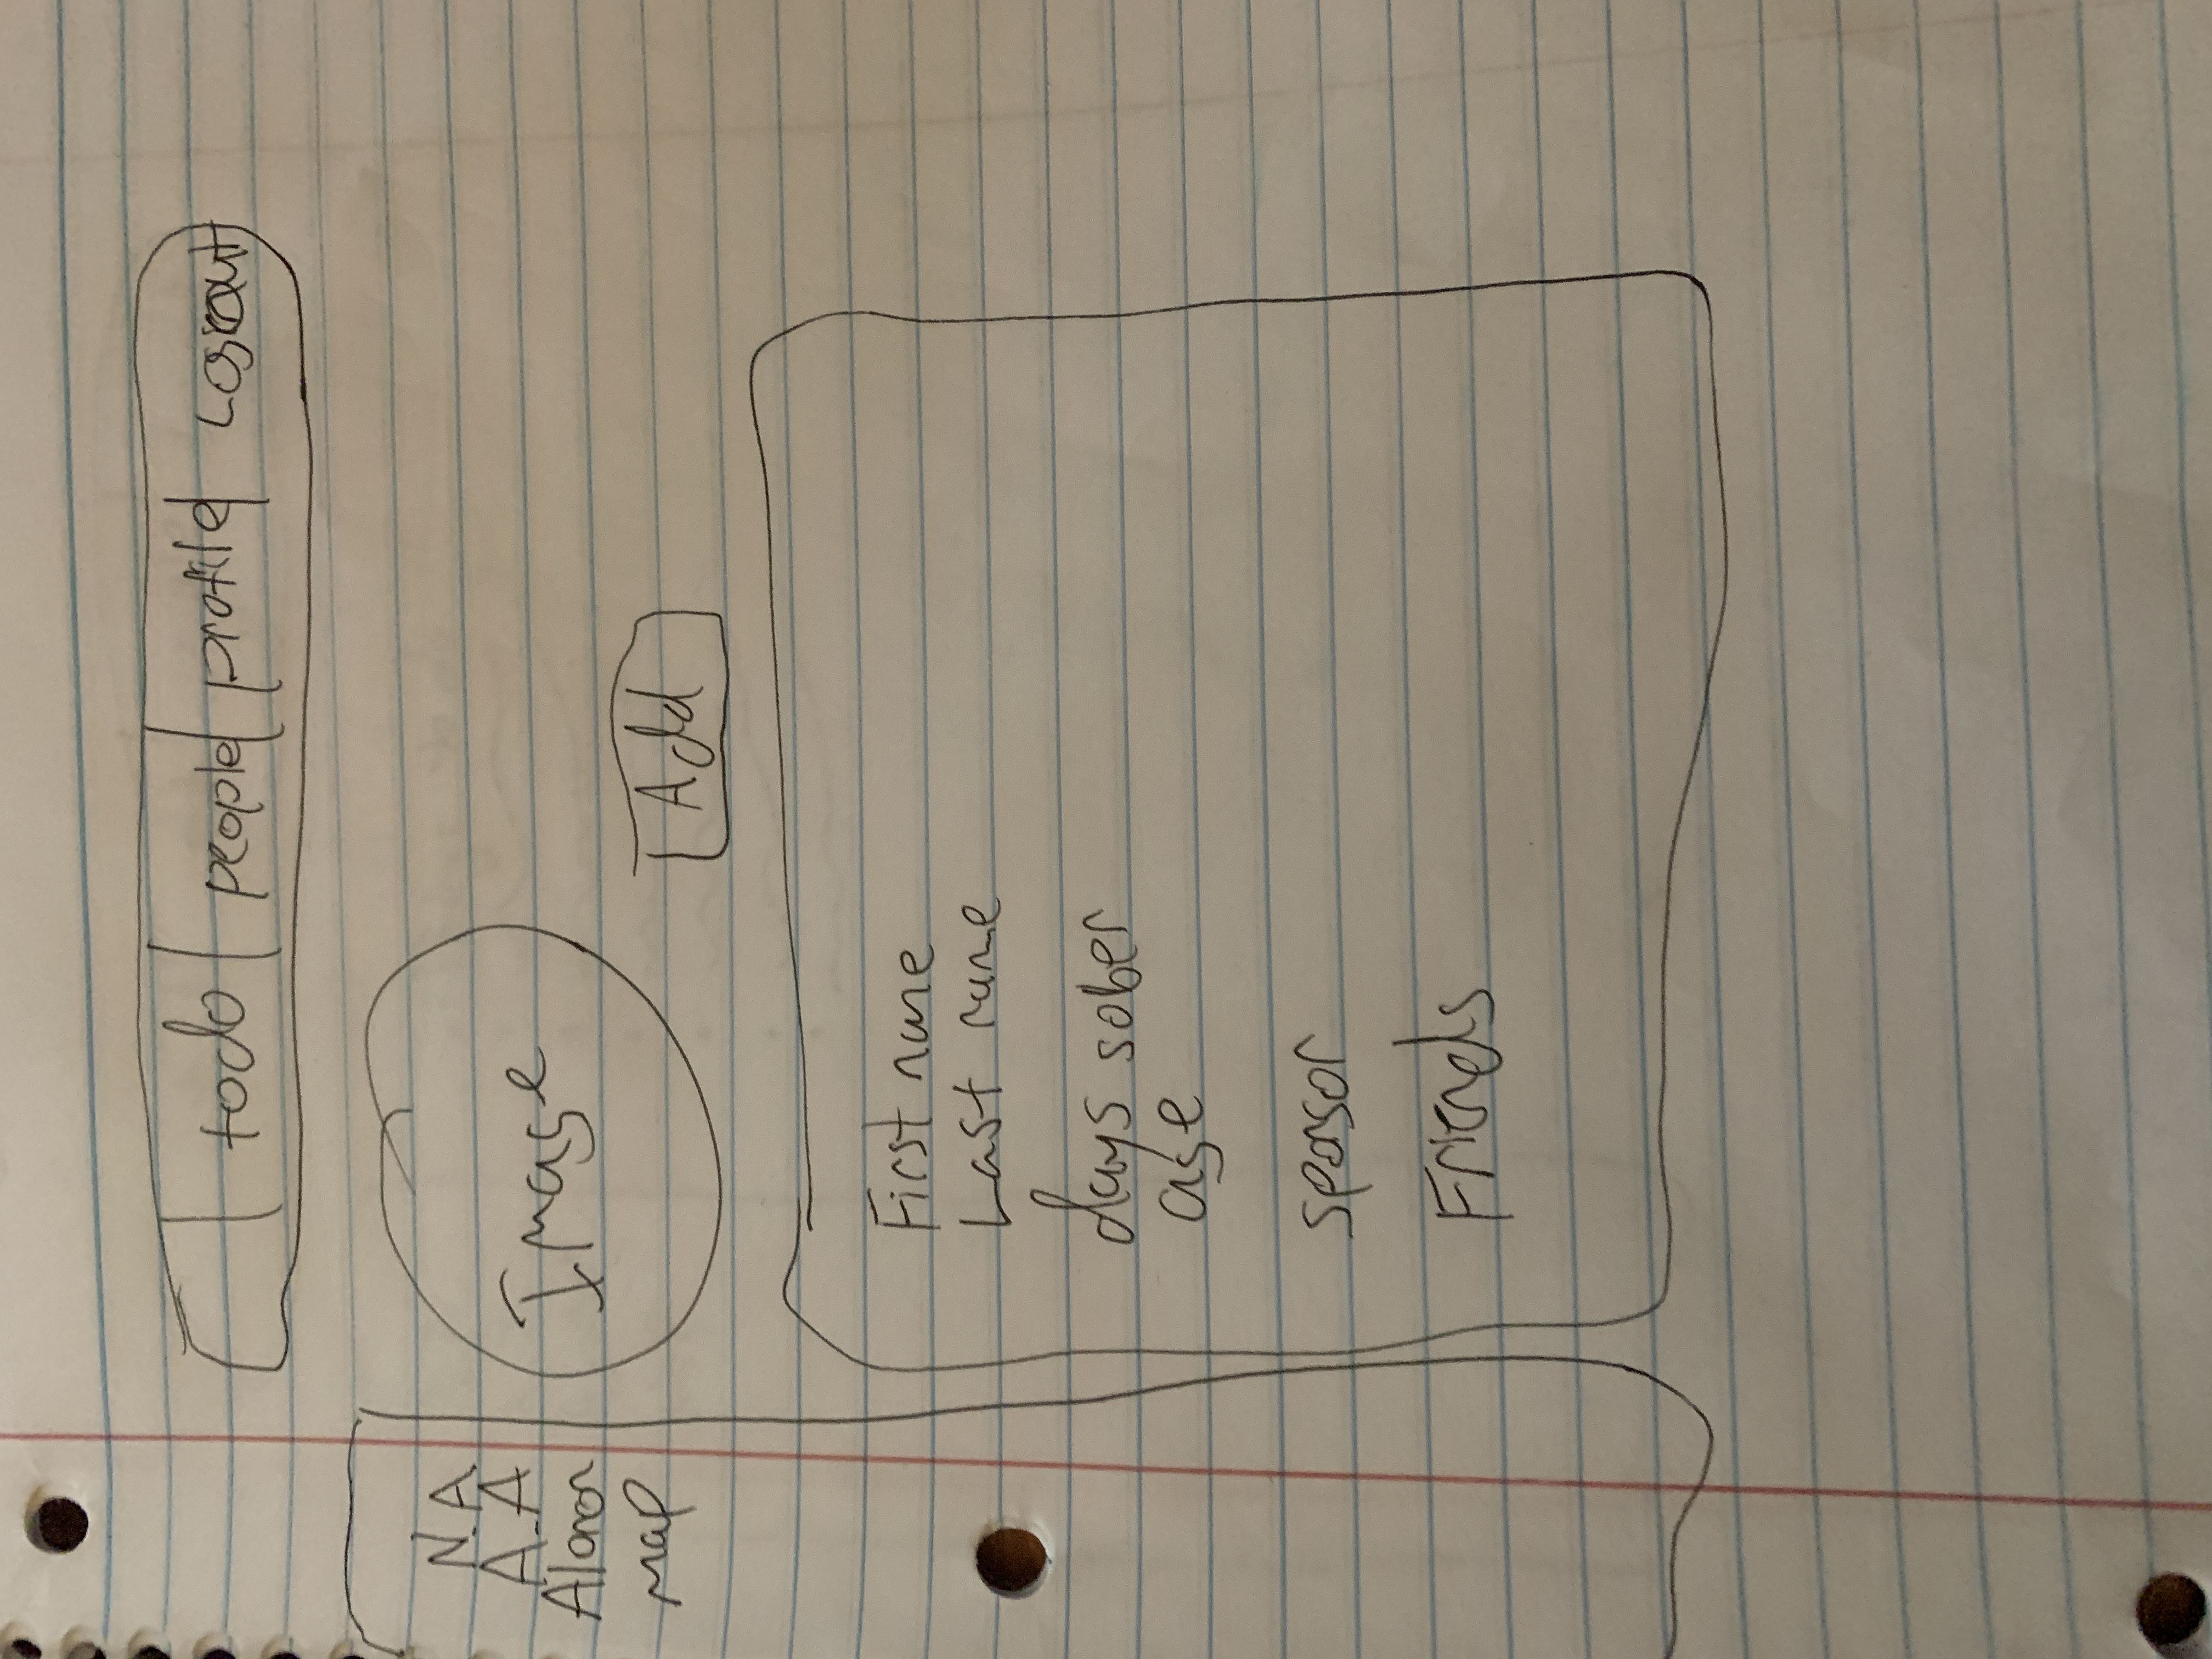 todo people profile Logout
N.A
A.A
Alanon
map
Image
Add
First name
Last name
days sober
age
sponsor
Friends